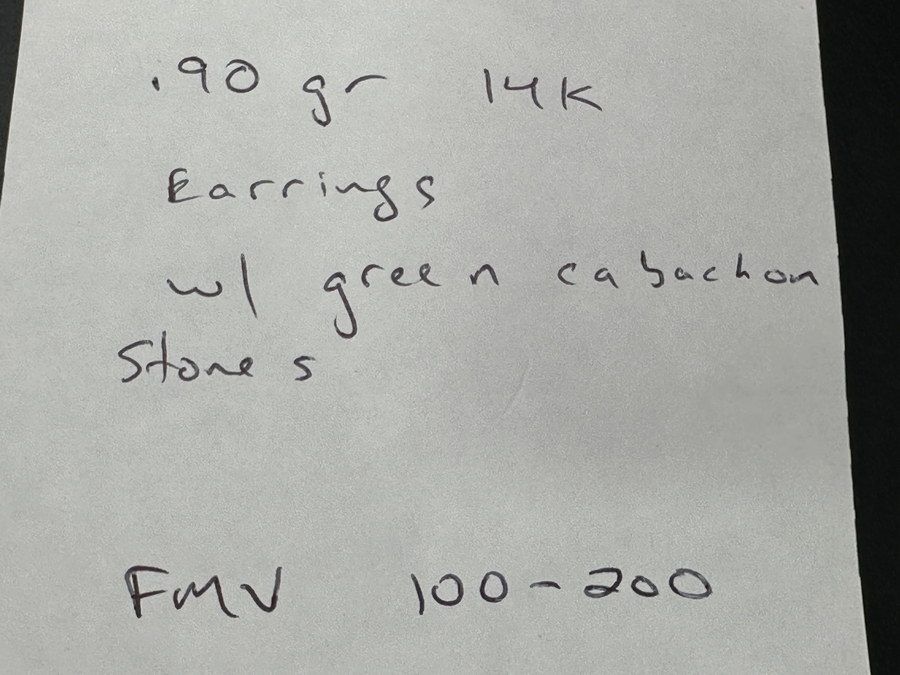 .90 gr 14K
Earrings
w/ green cabachon
Stones
FMV 100-200